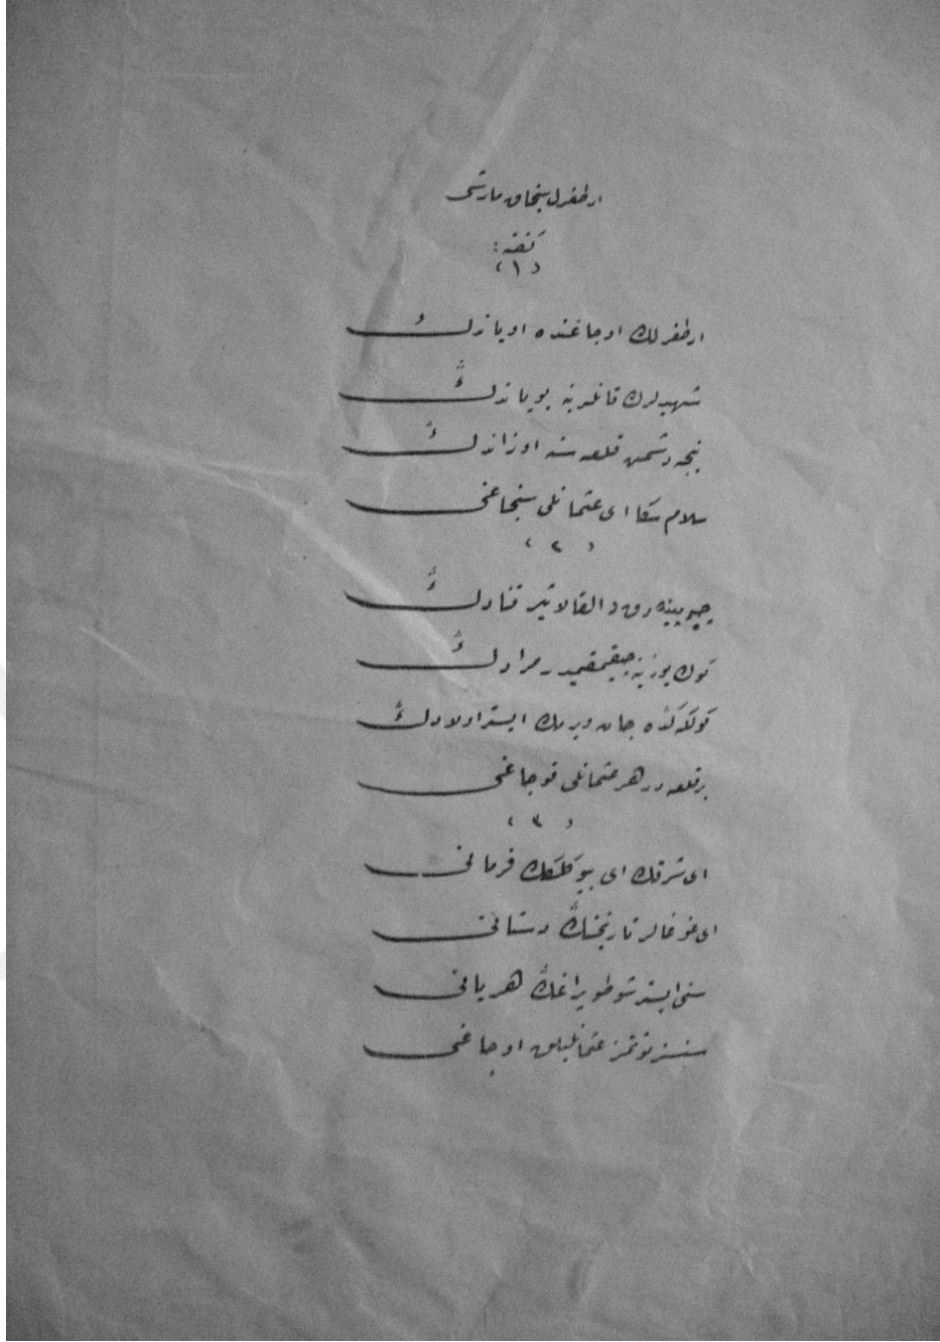 ارطغرل سنجاق مارشى
كفته :
(١)
ارطغرلك اوجاغنده اوياندڭ
شهيدلرك قانلرينه بوياندڭ
نيجه دشمن قلعه سنه اوزاندڭ
سلام سكا اى عثمانلى سنجاغى
(٢)
دالقالانير قنادڭ
كوك يوزينه چيقمقميدر مرادڭ
كولكه كده جان ويرمك ايستر اولادڭ
بر قلعه در هر عثمانلى قوجاغى
(٣)
اى شرقك اى بيوكلكك فرمانى
اى غوغالر تاريخنڭ دستانى
سنى ايستر شو طوپراغڭ هر يانى
سنسز توتمز عثمانليلق اوجاغى